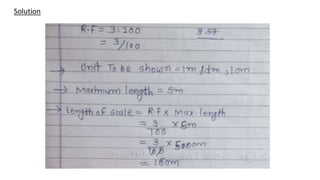 Solution
R.F = 3:100
= 3/100
→ Unit To be shown = 1m, 1dm, 1cm
→ Maximum length = 5m
→ Length of scale = R.F x Max. length
= 3/100 x 5m
= 3/100 x 500cm
= 15cm